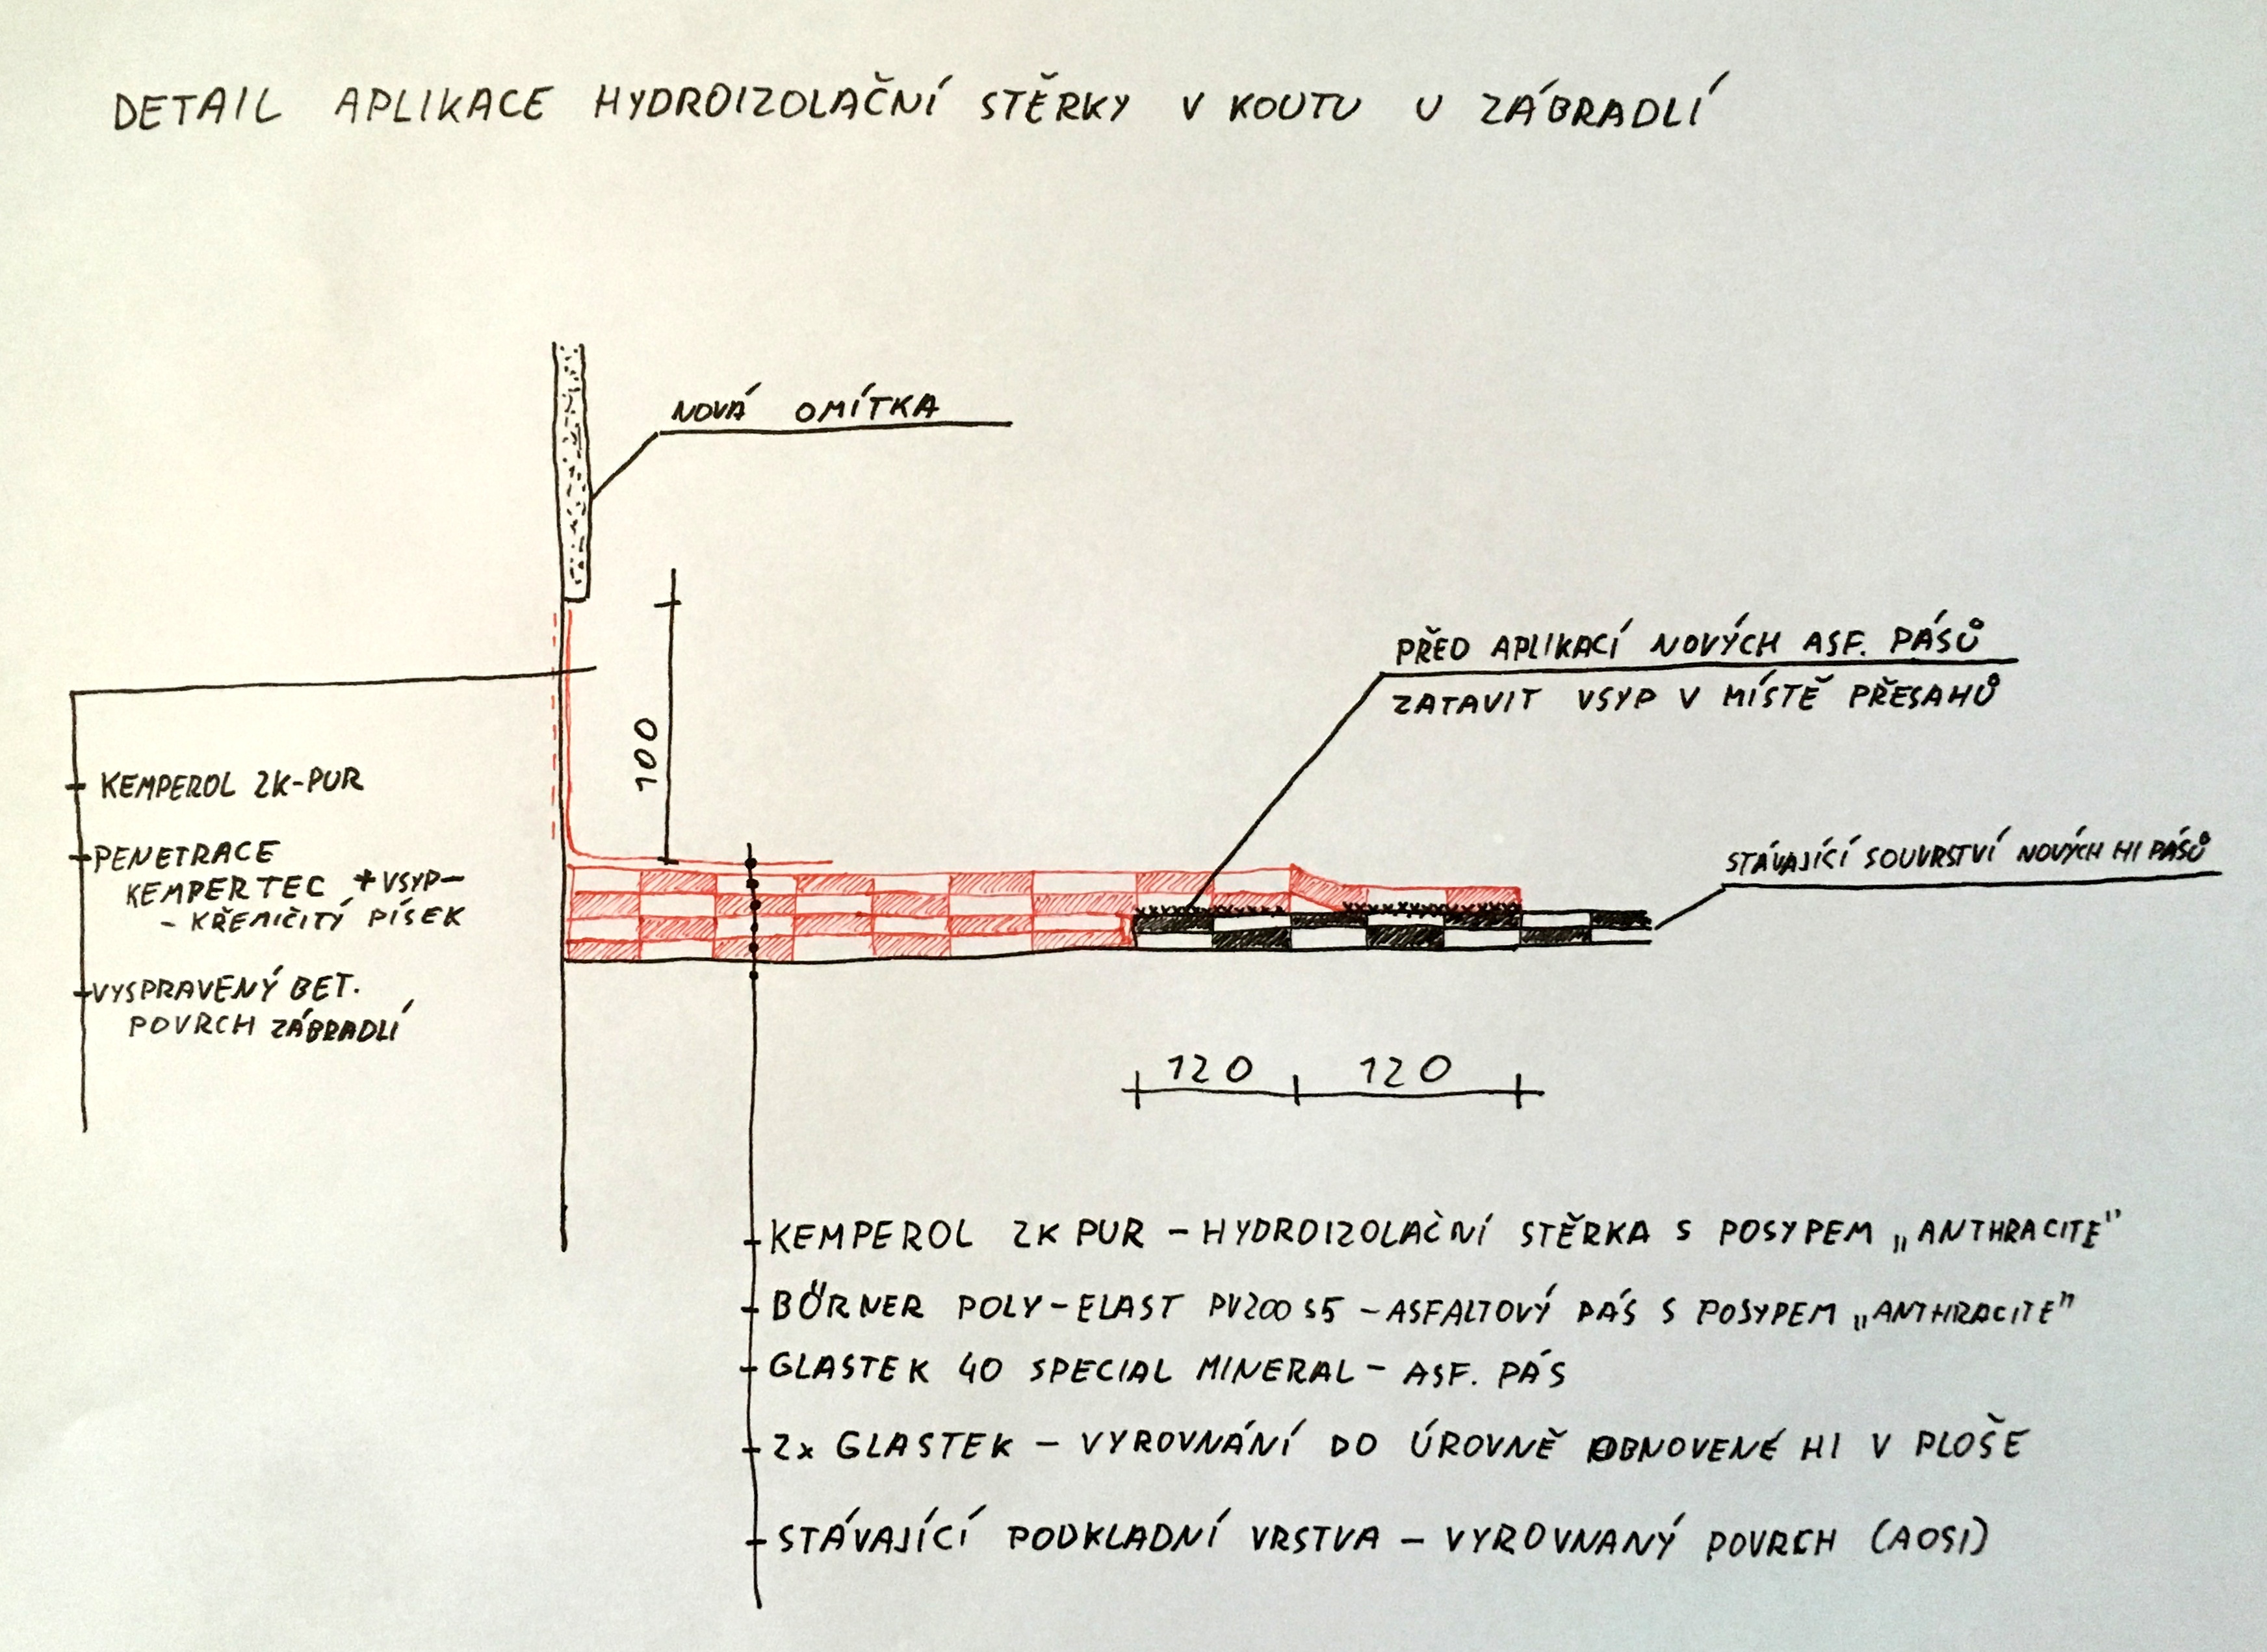 DETAIL APLIKACE HYDROIZOLAČNÍ STĚRKY V KOUTU U ZÁBRADLÍ
NOVÁ OMÍTKA
100
PŘED APLIKACÍ NOVÝCH ASF. PÁSŮ
ZATAVIT VSYP V MÍSTĚ PŘESAHŮ
STÁVAJÍCÍ SOUVRSTVÍ NOVÝCH HI PÁSŮ
KEMPEROL 2K-PUR
PENETRACE
KEMPERTEC + VSYP-
- KŘEMIČITÝ PÍSEK
VYSPRAVENÝ BET.
POVRCH ZÁBRADLÍ
120 120
KEMPEROL 2K PUR - HYDROIZOLAČNÍ STĚRKA S POSYPEM „ANTHRACITE"
BÖRNER POLY-ELAST PV200 S5 - ASFALTOVÝ PÁS S POSYPEM „ANTHRACITE"
GLASTEK 40 SPECIAL MINERAL - ASF. PÁS
2x GLASTEK - VYROVNÁNÍ DO ÚROVNĚ OBNOVENÉ HI V PLOŠE
STÁVAJÍCÍ PODKLADNÍ VRSTVA - VYROVNANÝ POVRCH (AOSI)